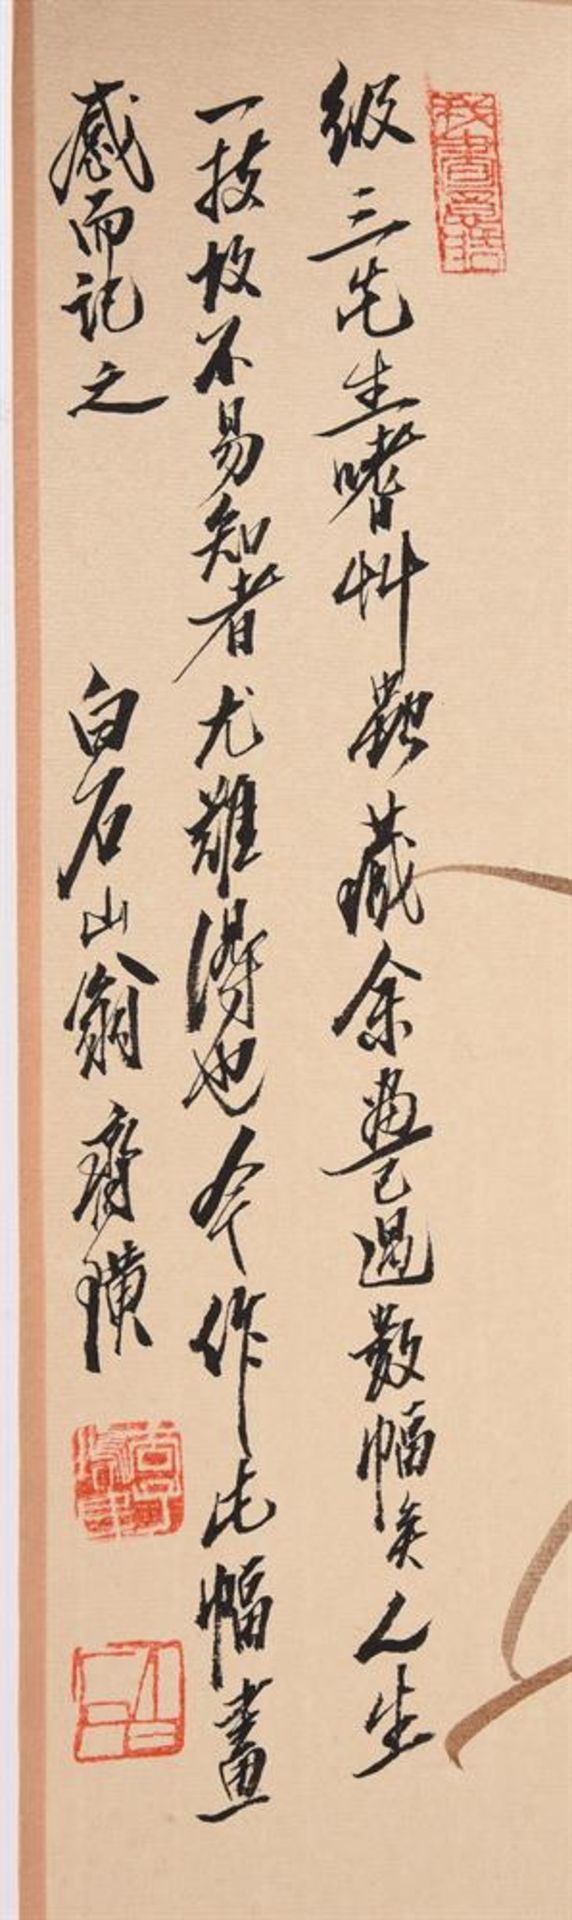 级三先生嗜艸蟲藏余畫已過數幅矣人生
一技故不易知者尤難得也今作此幅畫
感而記之 白石山翁齊璜